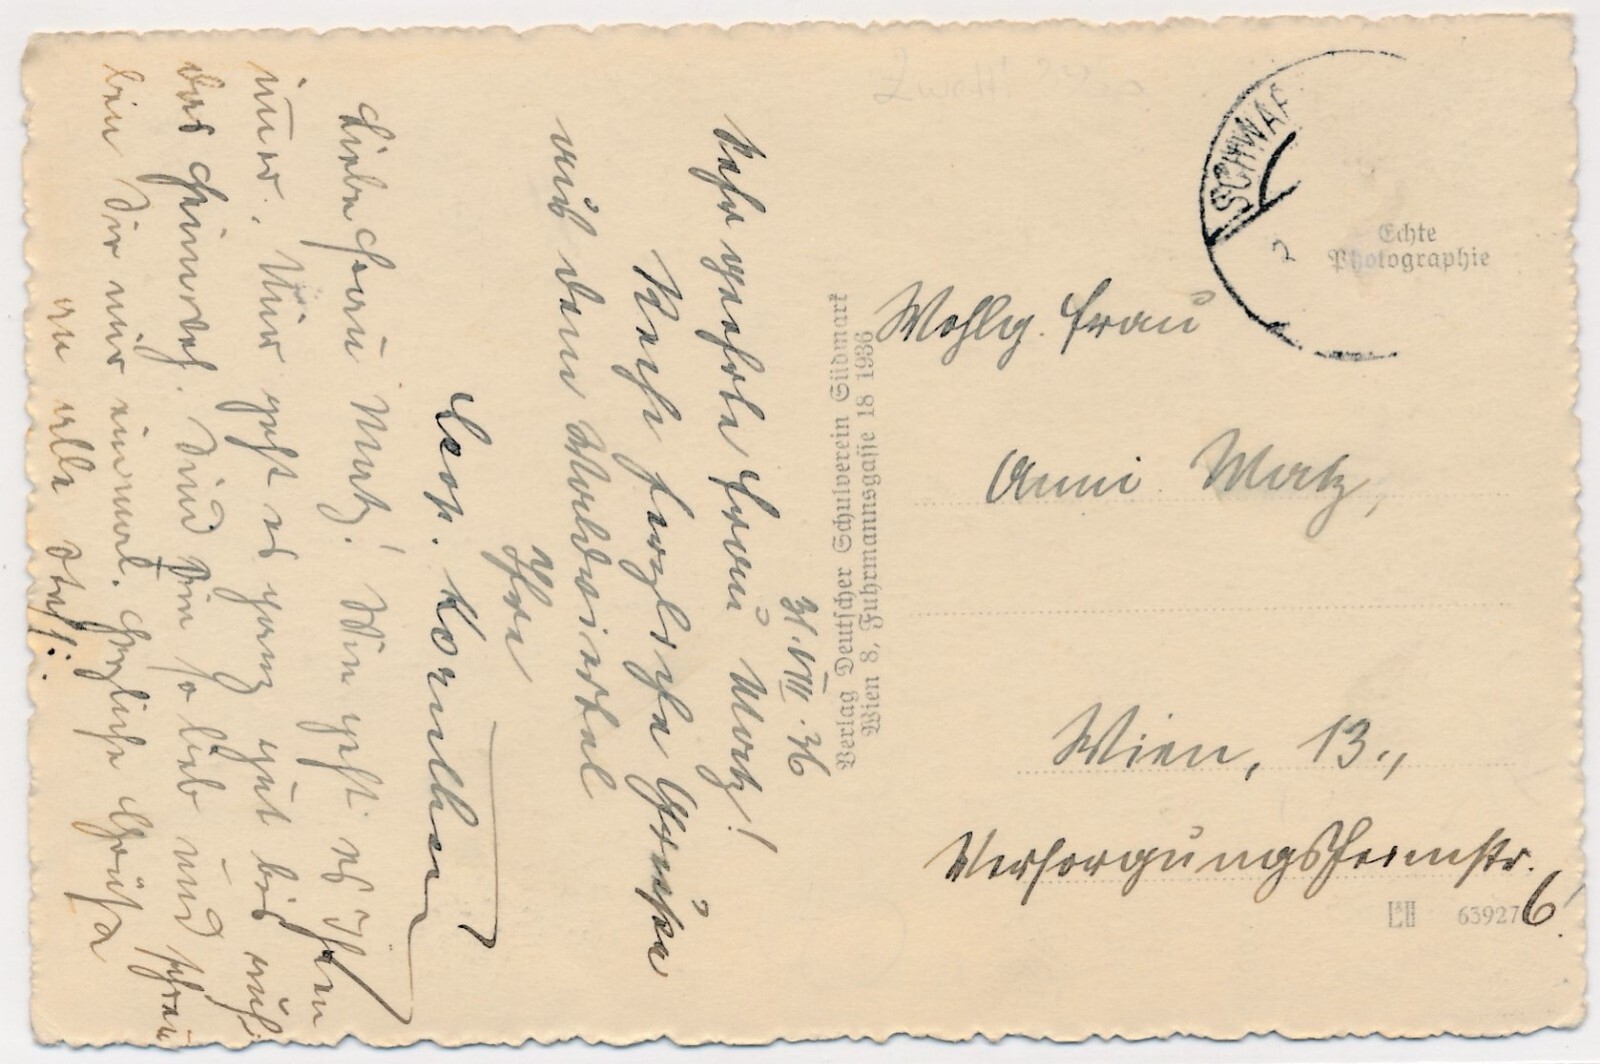 31.VIII.36
Sehr geehrte Frau Matz!
Recht herzliche Grüße
aus dem Waldviertel
Ihre
Leop.
Liebe Frau Matz! Wie geht es Ihnen
immer. Mir geht es ganz gut bis auf
das Heimweh. Sind Sie so lieb und schrei
ben Sie mir einmal. Herzliche Grüße
an alle
Verlag Deutscher Schulverein Südmark
Wien 8, Fuhrmannsgasse 18 1936
SCHWAR
Echte
Photographie
Wohlg. Frau
Anni Matz,
Wien, 13.,
Versorgungsheimstr.
6!
63927